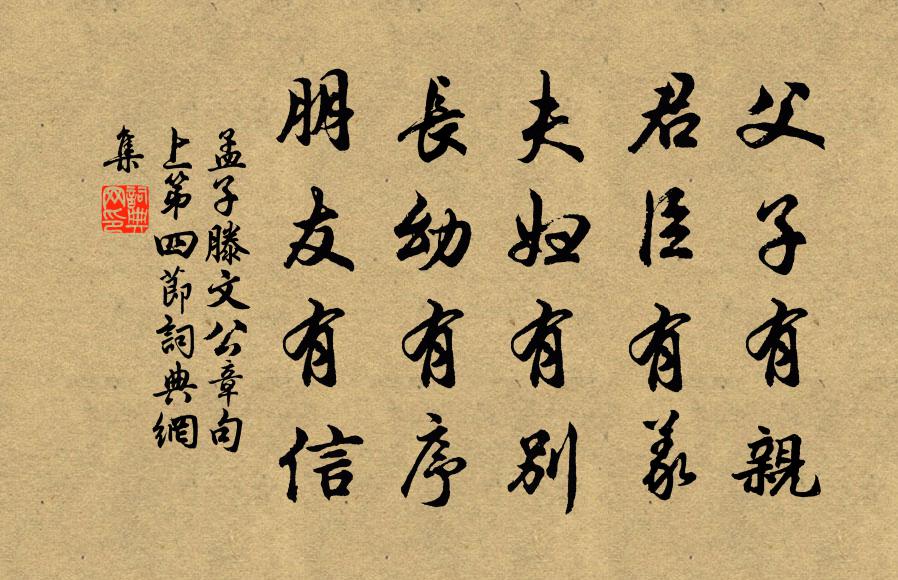 父子有親
君臣有義
夫妇有别
長幼有序
朋友有信
孟子滕文公章句
上第四節詞典網
集
詞典
网印